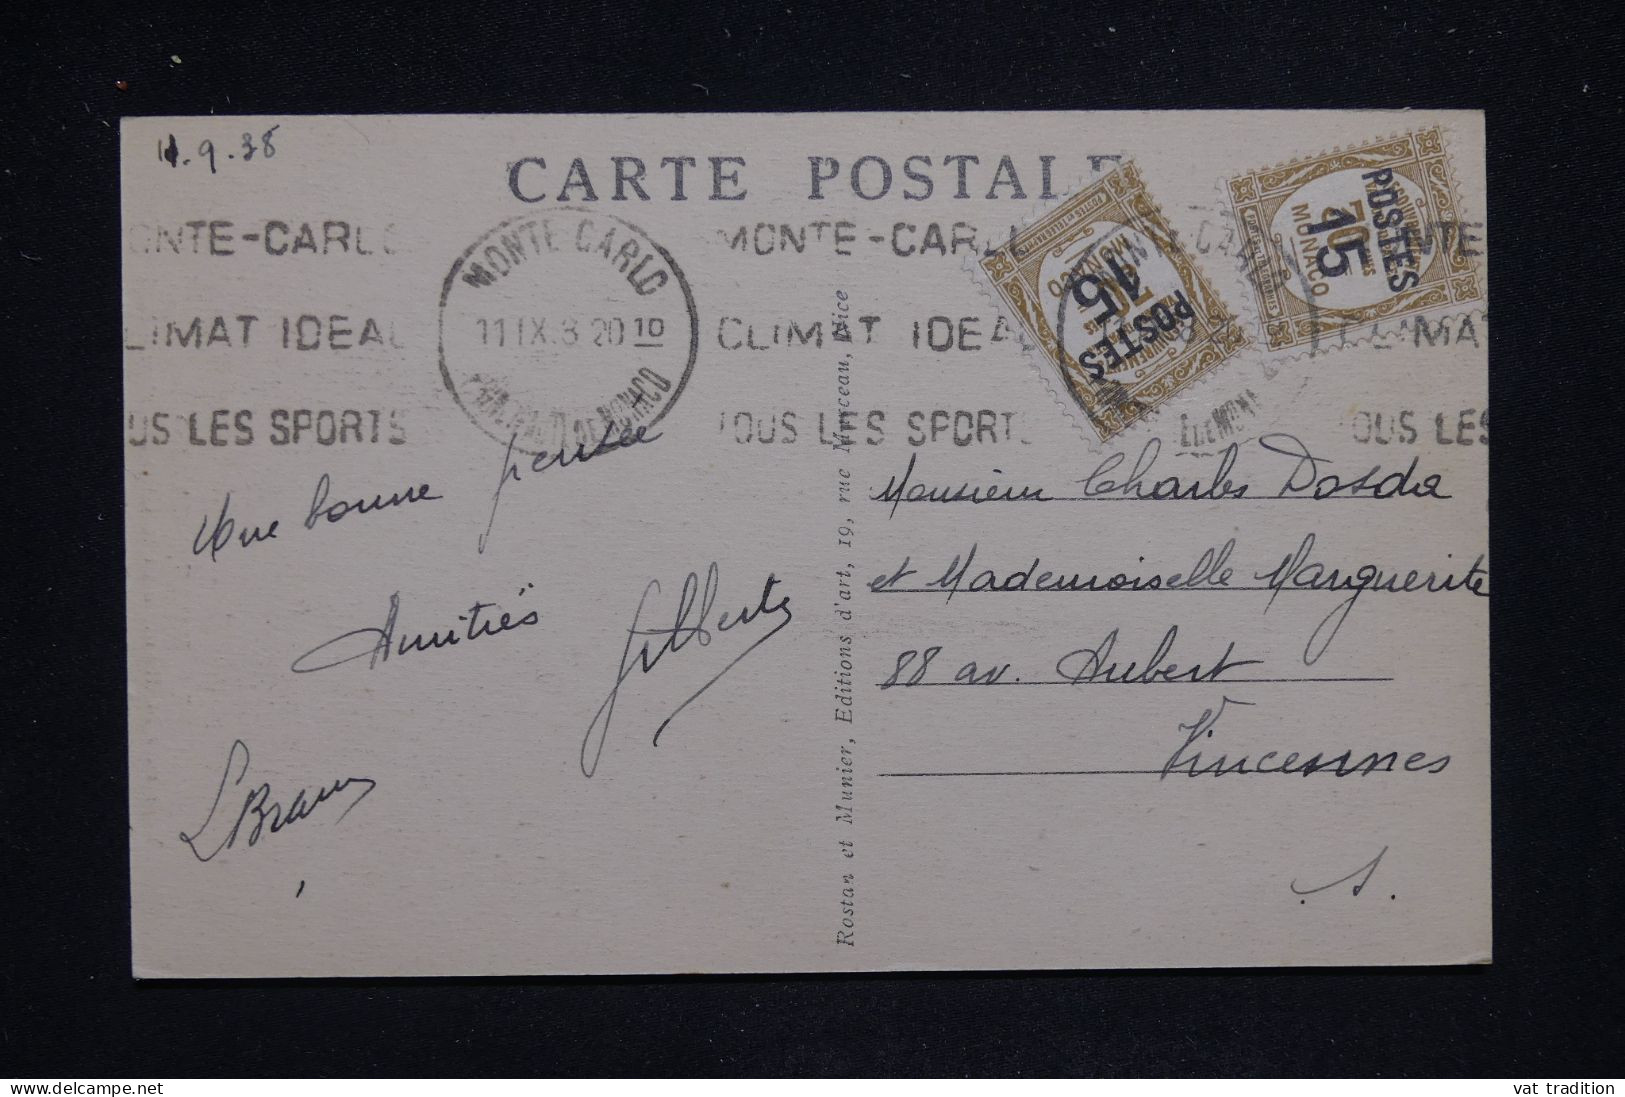 11.9.38
CARTE POSTALE
ONTE-CARLO
MONTE CARLO
MONTE-CARLO
NTE
LIMAT IDEAL
11 IX.3 20 10
CLIMAT IDEA
CLIMAT
US LES SPORTS
PRINCIPAUTÉ DE MONACO
TOUS LES SPORTS
OUS LES
POSTES
15
MONACO
POSTES
15
MONACO
Une bonne pensée
Amitiés
Gilberte
LBraun
Rostan et Munier, Editions d'art, 19, rue Marceau, Nice
Monsieur Charles Dosda
et Mademoiselle Marguerite
88 av. Aubert
Vincennes
. S.
vat tradition